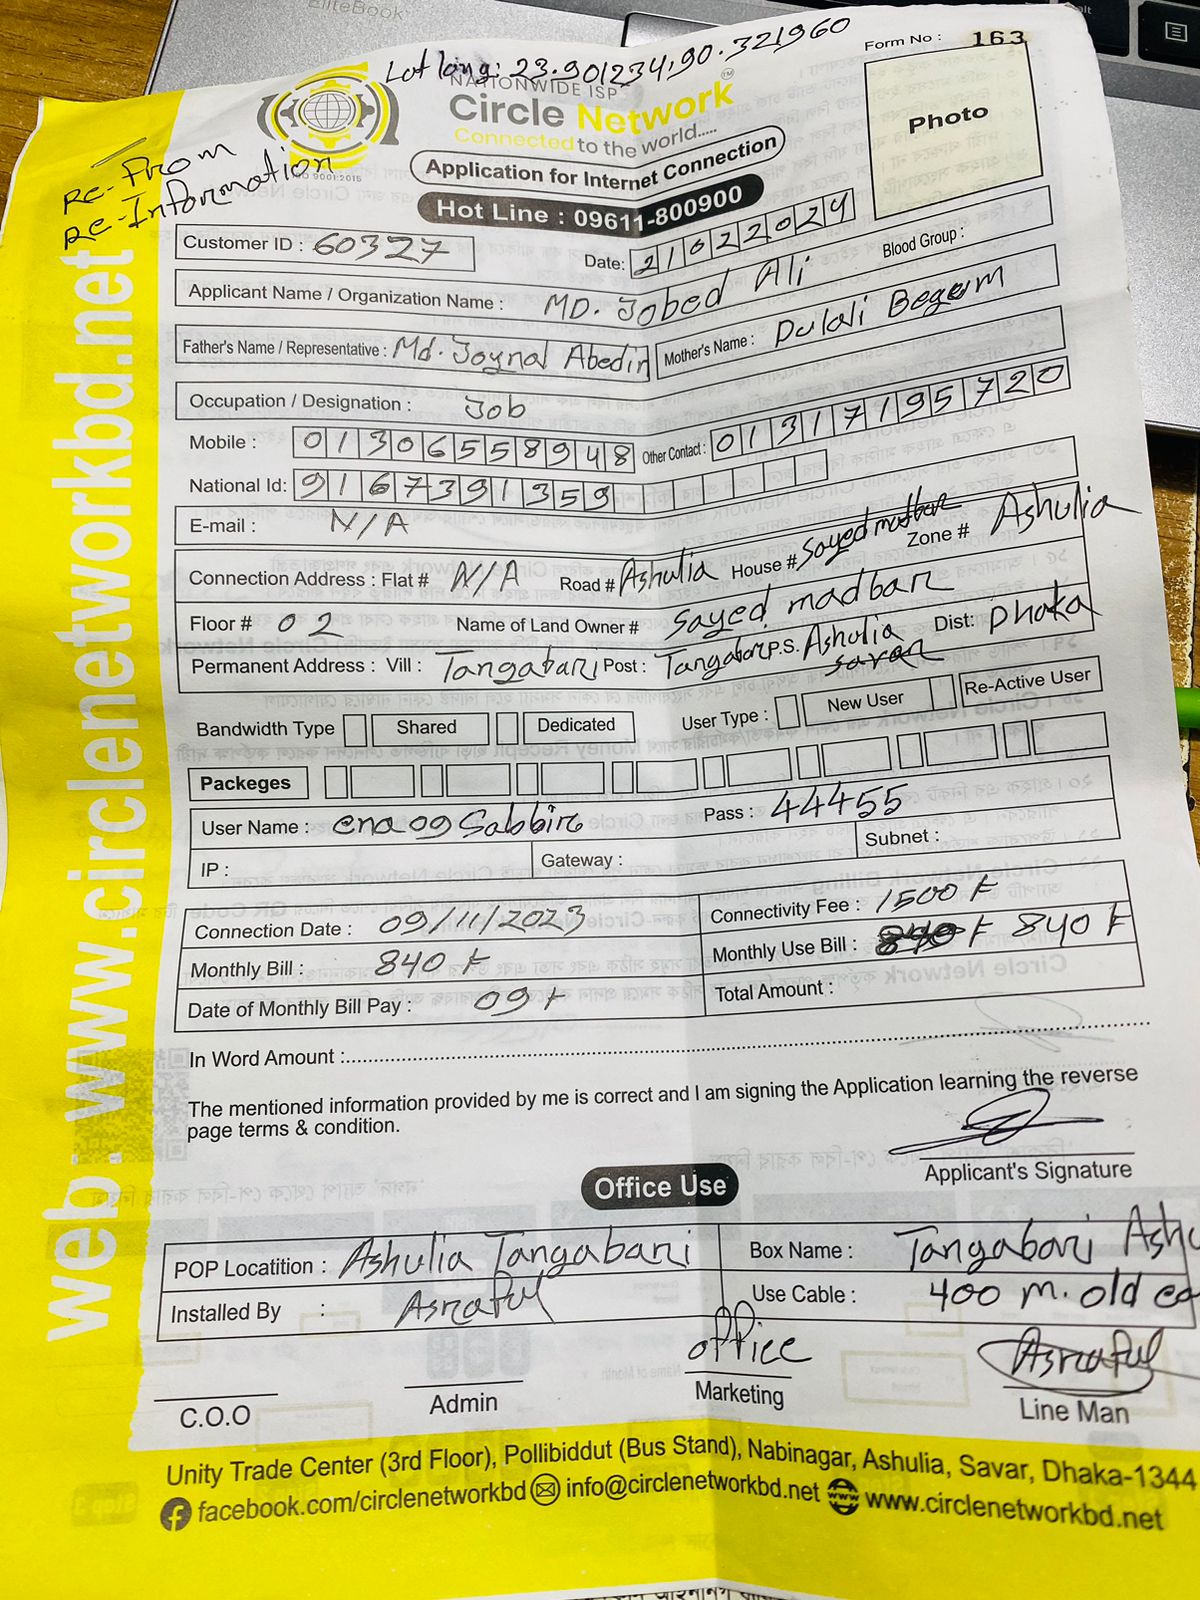 EliteBook
alt
Lat long: 23.901234,90.321960
Form No : 163
NATIONWIDE ISP
Circle Network™
Connected to the world.....
ISO 9001:2015
Photo
Re-From
Re-Information
Application for Internet Connection
Hot Line : 09611-800900
Customer ID : 60327
Date: 21022024
Blood Group :
Applicant Name / Organization Name : MD. Jobed Ali
Father's Name / Representative : Md. Joynal Abedin
Mother's Name : Dulali Begum
Occupation / Designation : Job
Mobile : 01306558948
Other Contact : 01317195720
National Id: 9167391359
E-mail : N/A
Connection Address : Flat # N/A Road # Ashulia House # Sayed madbar Zone # Ashulia
Floor # 02 Name of Land Owner # Sayed madbar
Permanent Address : Vill : Tangabari Post : Tangabari P.S. Ashulia Dist: Dhaka
savar
Bandwidth Type Shared Dedicated User Type : New User Re-Active User
Packeges
User Name : cna09Sabbir Pass : 44455
IP : Gateway : Subnet :
Connection Date : 09/11/2023 Connectivity Fee : 1500 ৳
Monthly Bill : 840 ৳ Monthly Use Bill : 840 ৳ 840 ৳
Date of Monthly Bill Pay : 09 Total Amount :
In Word Amount :
The mentioned information provided by me is correct and I am signing the Application learning the reverse
page terms & condition.
Applicant's Signature
Office Use
POP Locatition : Ashulia Tangabari Box Name : Tangabari Ashu
Installed By : Asraful Use Cable : 400 m. old ca
office Asraful
C.O.O Admin Marketing Line Man
Unity Trade Center (3rd Floor), Pollibiddut (Bus Stand), Nabinagar, Ashulia, Savar, Dhaka-1344
facebook.com/circlenetworkbd info@circlenetworkbd.net www.circlenetworkbd.net
web : www.circlenetworkbd.net